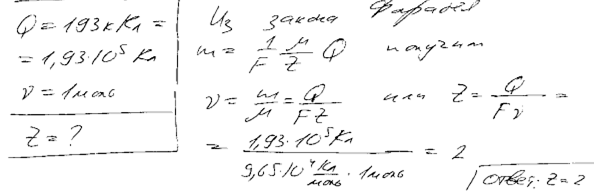 Q = 193 кКл =
= 1,93·10⁵ Кл
ν = 1 моль
Z = ?
Из закона Фарадея
m = 1/F μ/Z Q получим
ν = m/μ = Q/FZ или Z = Q/Fν =
= 1,93·10⁵ Кл / 9,65·10⁴ Кл/моль · 1 моль = 2
Ответ: Z = 2